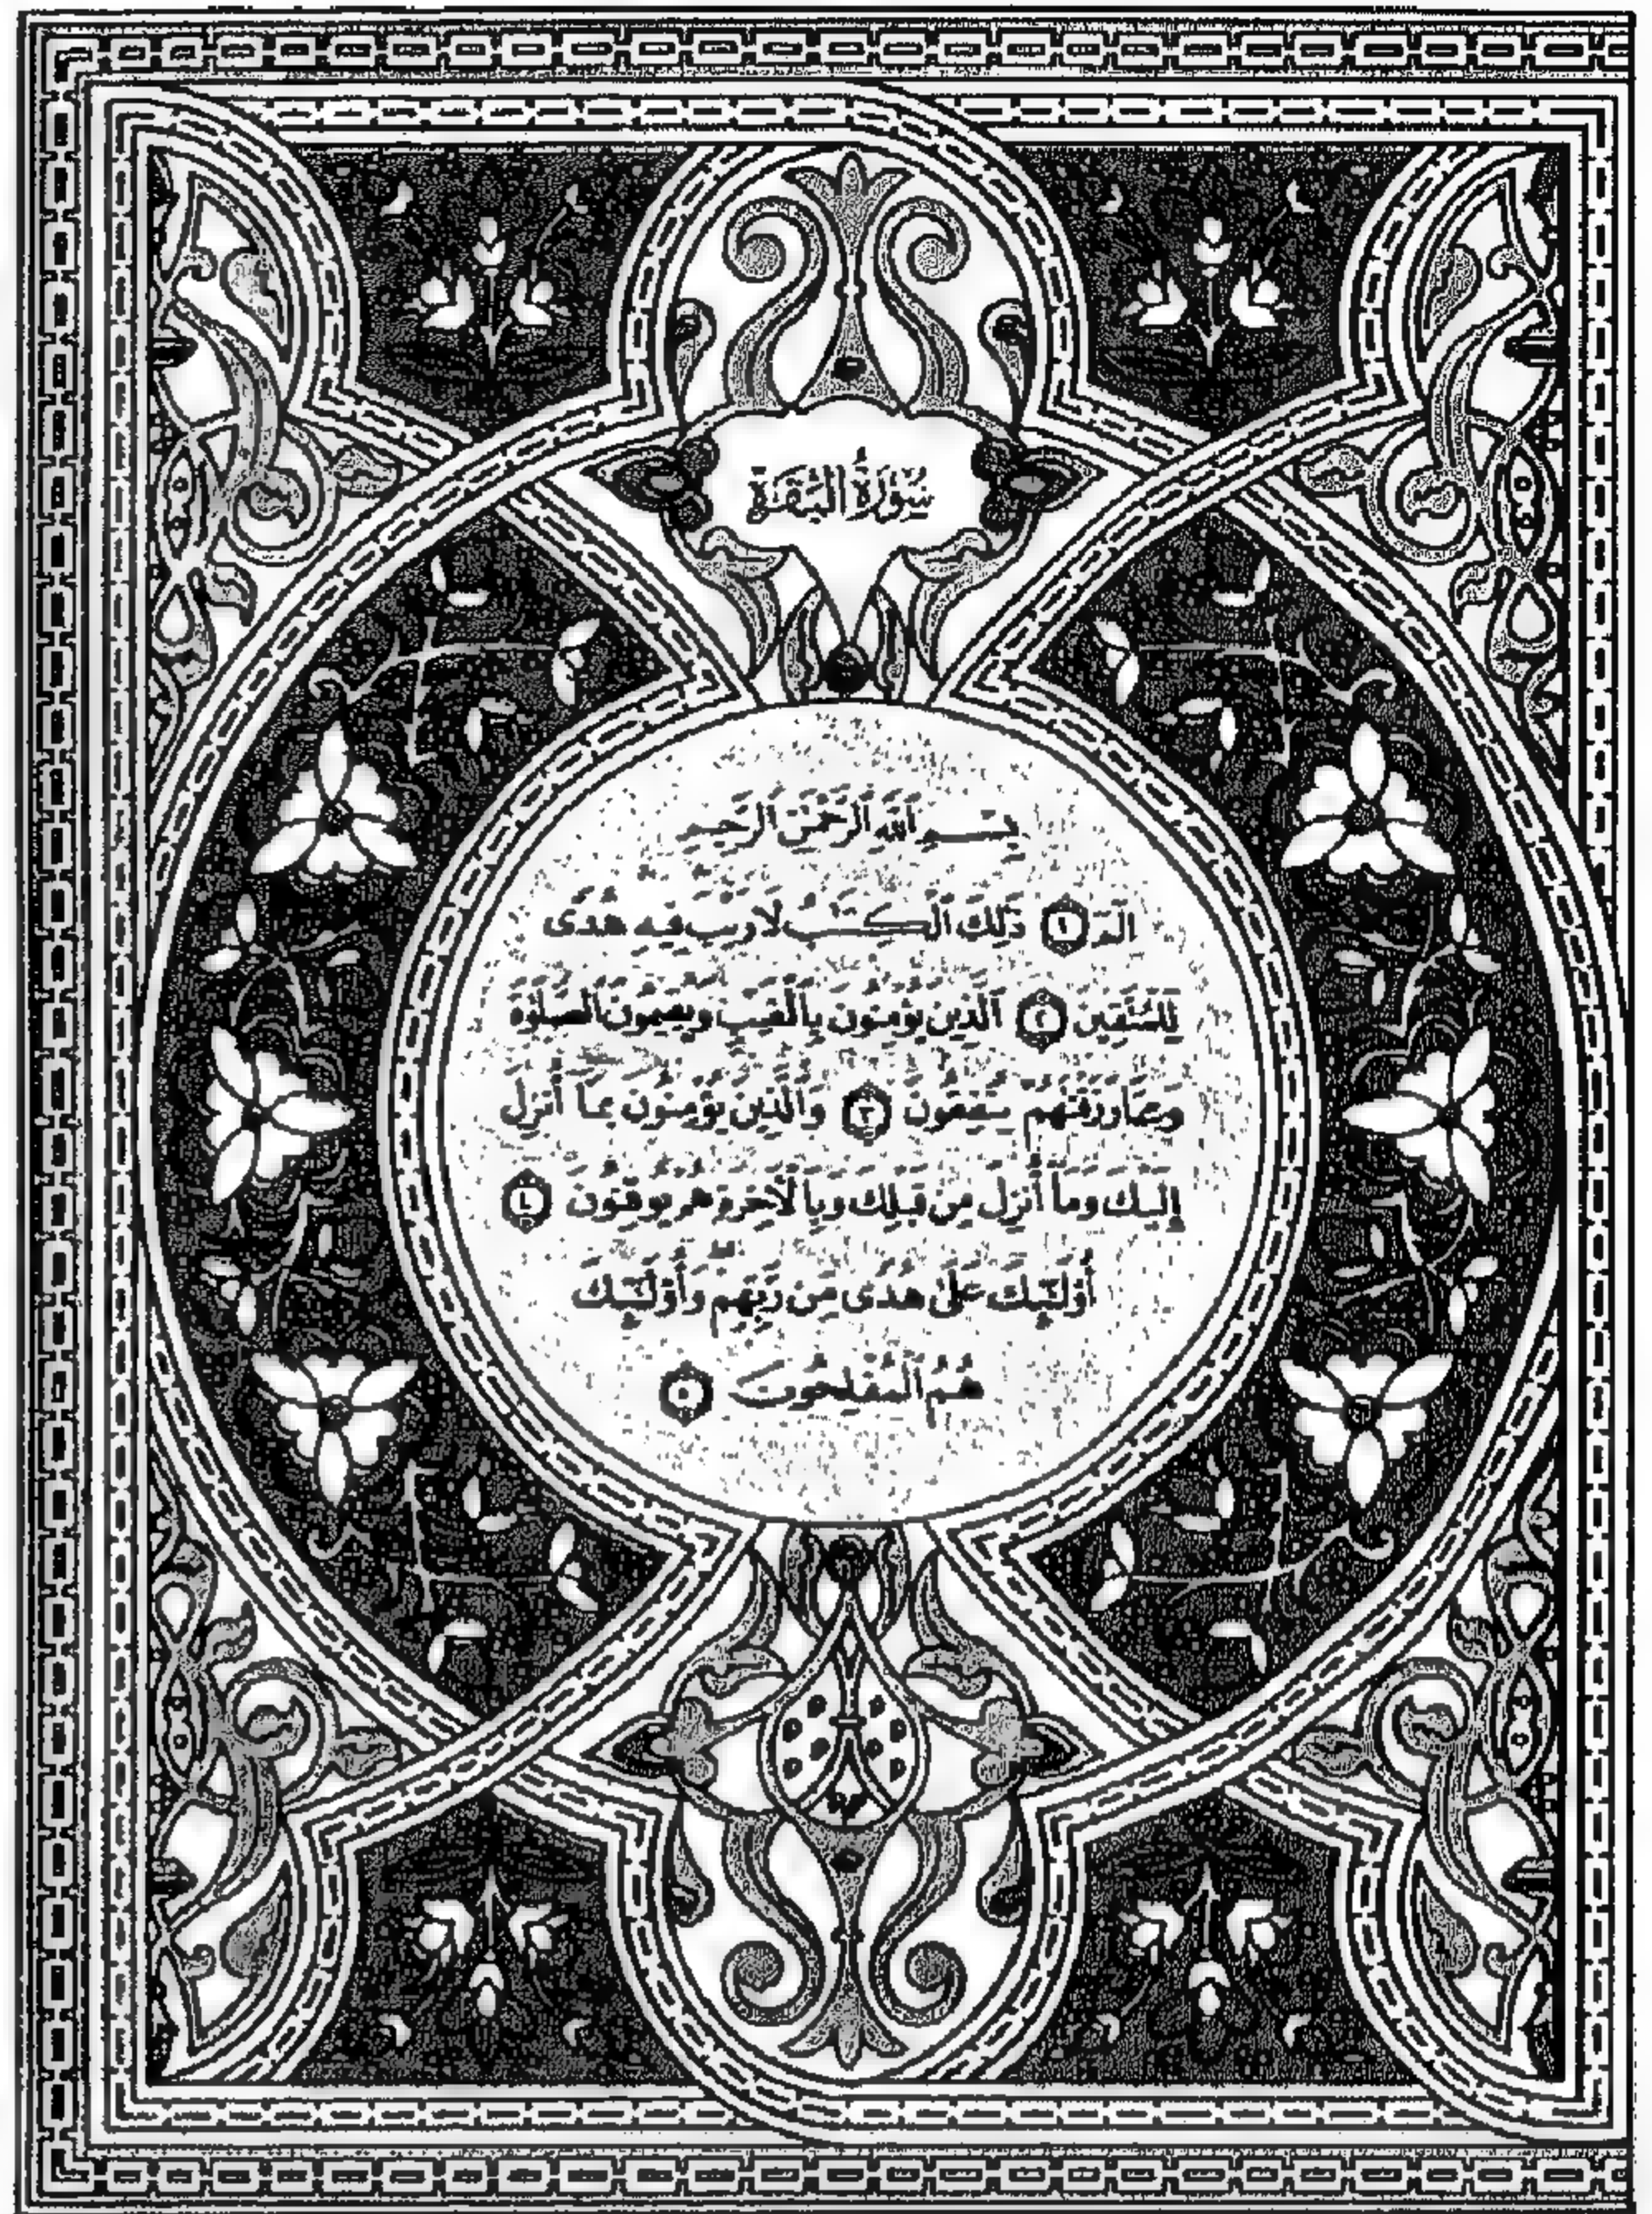 سُورَةُ الْبَقَرَةِ
بِسْمِ اللَّهِ الرَّحْمَٰنِ الرَّحِيمِ
الٓمٓ ١ ذَٰلِكَ الْكِتَٰبُ لَا رَيْبَ فِيهِ هُدًى
لِّلْمُتَّقِينَ ٢ الَّذِينَ يُؤْمِنُونَ بِالْغَيْبِ وَيُقِيمُونَ الصَّلَوٰةَ
وَمِمَّا رَزَقْنَٰهُمْ يُنفِقُونَ ٣ وَالَّذِينَ يُؤْمِنُونَ بِمَا أُنزِلَ
إِلَيْكَ وَمَا أُنزِلَ مِن قَبْلِكَ وَبِالْآخِرَةِ هُمْ يُوقِنُونَ ٤
أُوْلَٰئِكَ عَلَىٰ هُدًى مِّن رَّبِّهِمْ وَأُوْلَٰئِكَ
هُمُ الْمُفْلِحُونَ ٥